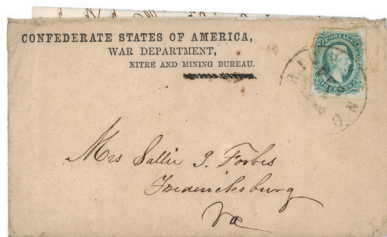 CONFEDERATE STATES OF AMERICA,
WAR DEPARTMENT,
NITRE AND MINING BUREAU.
Mrs Sallie J. Forbes
Fredericksburg
Va